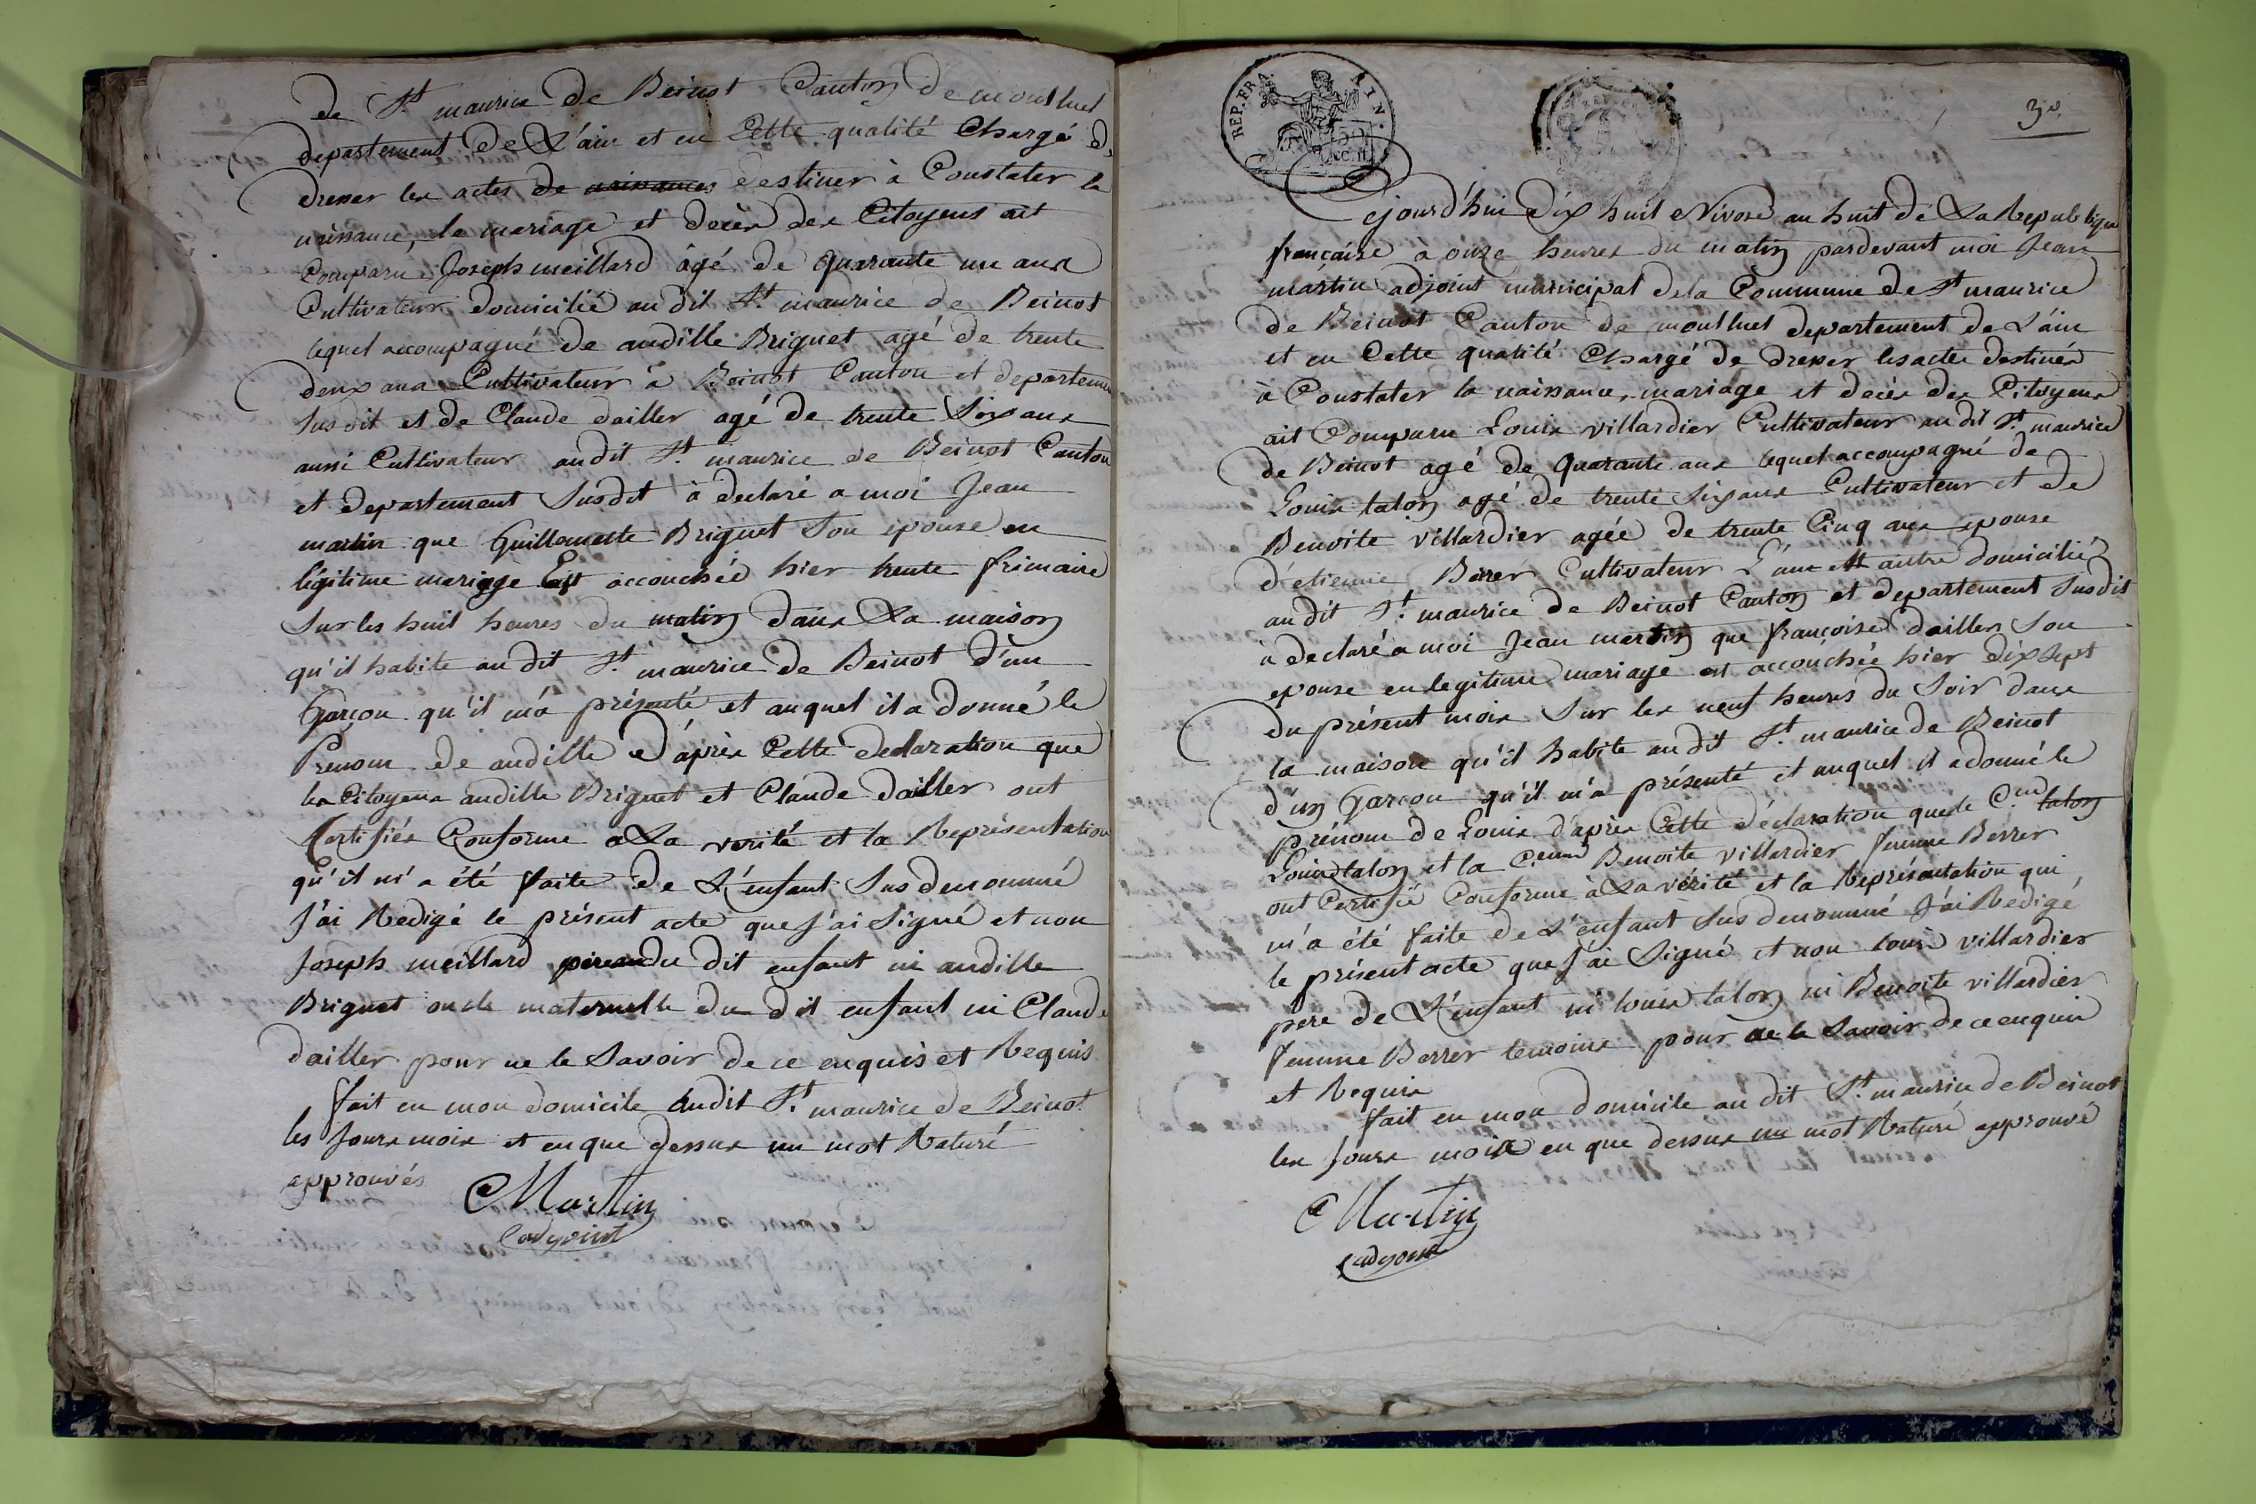 de St maurice de Beinost Canton de montluel
departement de L'ain et en Cette qualité Chargé de
dresser les actes de naissances destiner à Constater la
naissance, le mariage et decès des Citoyens ait
Comparu Joseph meillard âgé de quarante un ans
Cultivateur domicilié audit St maurice de Beinost
lequel accompagné de audille Briguet agé de trente
deux ans Cultivateur à Beinost Canton et departement
Susdit et de Claude dailler agé de trente Six ans
aussi Cultivateur audit St maurice de Beinost Canton
et departement Susdit à declaré a moi Jean
martin que Guillemette Briguet Son epouse en
légitime mariage Est accouchée hier trente frimaire
Sur les huit heures du matin dans La maison
qu'il habite au dit St maurice de Beinost d'un
Garçon qu'il m'a présenté et auquel il a donné le
Prenom de audille d'après Cette declaration que
les Citoyens audille Briguet et Claude dailler ont
Certifiés Conforme a La verité et la Représentation
qu'il m'a été faite de L'enfant Sus denommé
J'ai Redigé le présent acte que J'ai Signé et non
Joseph meillard pere du dit enfant ni audille
Briguet oncle maternelle du dit enfant ni Claude
dailler pour ne le Savoir de ce enquis et Requis
fait en mon domicile audit St maurice de Beinost
les Jours mois et en que dessus un mot Raturé
approuvés
Martin
adjoint
REP. FRA. AIN.
3e
Cejourd'hui dix huit Nivose an huit de La Republique
française à onze heures du matin pardevant moi Jean
martin adjoint municipal dela Commune de St maurice
de Beinost Canton de montluel departement de L'ain
et en Cette qualité Chargé de dresser les actes destinés
à Constater la naissance, mariage et decès des Citoyens
ait Comparu Louis villardier Cultivateur audit St maurice
de Beinost agé de quarante ans lequel accompagné de
Louis talon agé de trente six ans Cultivateur et de
Benoite villardier agée de trente Cinq ans epouse
d'etienne Berrer Cultivateur L'un et autre domiciliés
audit St maurice de Beinost Canton et departement Susdit
à declaré a moi Jean martin que françoise dailler Son
epouse en legitime mariage est accouchée hier dix Sept
du présent mois Sur les neuf heures du Soir dans
la maison qu'il habite au dit St maurice de Beinost
d'un Garçon qu'il m'a présenté et auquel il a donné le
prénom de Louis d'après Cette déclaration que le C.en talon
Louis talon et la C.enne Benoite villardier femme Berrer
ont Certifié Conforme à La vérité et la Représentation qui
m'a été faite de L'enfant Sus denommé J'ai Redigé
le présent acte que J'ai Signé et non Louis villardier
pere de L'enfant ni Louis talon ni Benoite villardier
femme Berrer temoins pour ne le Savoir de ce enquis
et Requis
fait en mon domicile au dit St maurice de Beinost
les Jours mois en que dessus un mot Raturé approuvé
Martin
adjoint